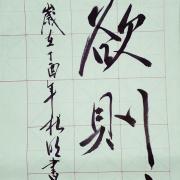 欲則
歲在丁酉年書